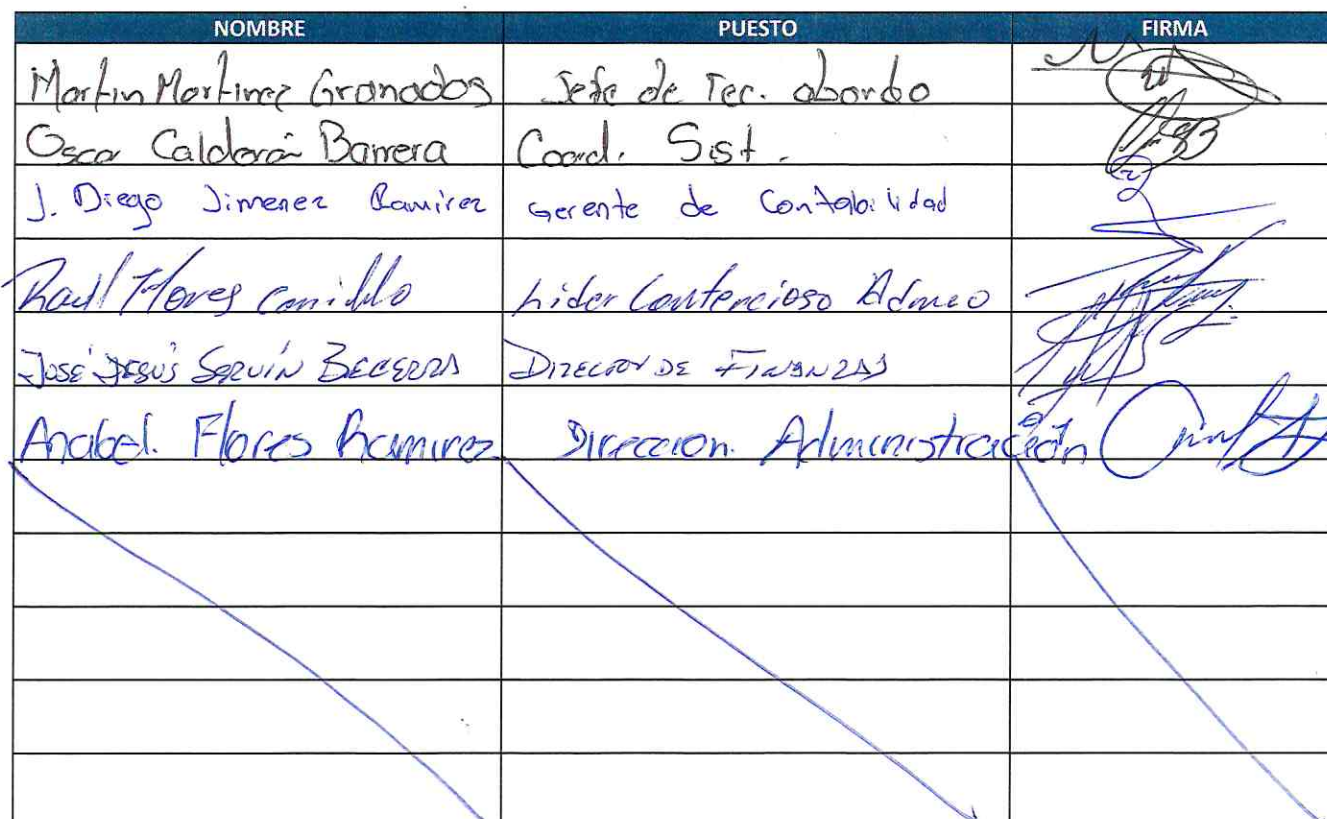 NOMBRE PUESTO FIRMA
Martin Martinez Granados Jefe de Tec. abordo
Oscar Calderón Barrera Coord. Sist.
J. Diego Jimenez Ramirez Gerente de Contabilidad
Raul Flores Carrillo Lider Contencioso Admvo
José Jesús Servín Becerra Director de Finanzas
Anabel. Flores Ramirez Direccion. Administración